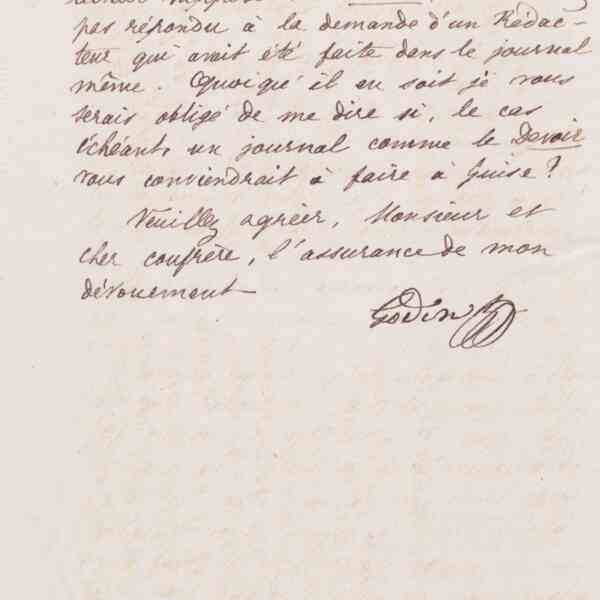 pas répondu à la demande d'un Rédac-
teur qui avait été faite dans le journal
même. Quoiqu'il en soit je vous
serais obligé de me dire si, le cas
échéant, un journal comme le Devoir
vous conviendrait à faire à Guise?
Veuillez agréer, Monsieur et
cher confrère, l'assurance de mon
dévouement
Godin